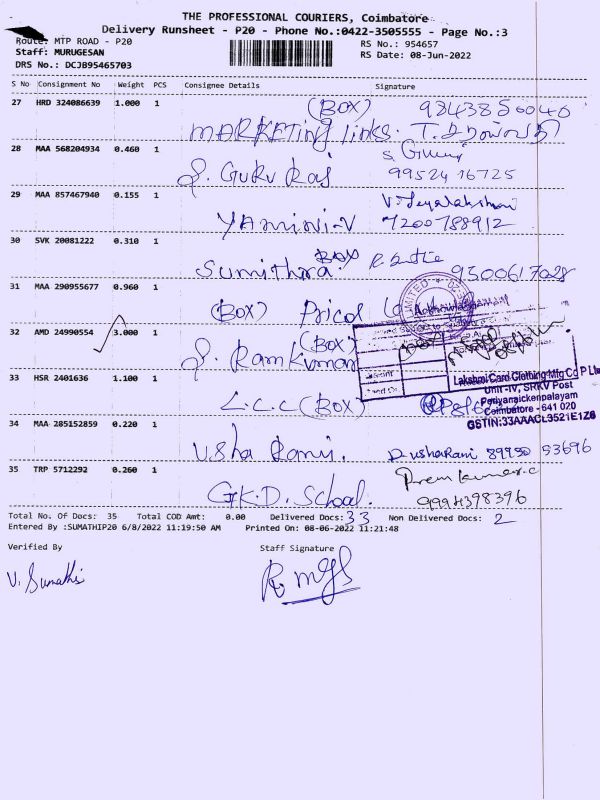 THE PROFESSIONAL COURIERS, Coimbatore
Delivery Runsheet - P20 - Phone No.:0422-3505555 - Page No.:3
Route: MTP ROAD - P20
RS No.: 954657
Staff: MURUGESAN
RS Date: 08-Jun-2022
DRS No.: DCJB95465703
S No Consignment No Weight PCS Consignee Details Signature
27 HRD 324086639 1.000 1
(BOX) 9843856046
MARKETing links.
28 MAA 568204934 0.460 1
S. Guru Raj 99524 16725
29 MAA 857467940 0.155 1
V. Jeyalakshmi
YAMiNi-V 7200788912
30 SVK 20081222 0.310 1
BOX
Sumithra 9500617028
31 MAA 290955677 0.960 1
(BOX) Pricol
32 AMD 24990554 3.000 1
(BOX)
S. Ramkumar
Lakshmi Card Clothing Mfg Co P Ltd
Unit -IV, SRKV Post
Periyanaickenpalayam
Coimbatore - 641 020
GSTIN:33AAACL3521E1Z8
33 HSR 2401636 1.100 1
L.C.C (BOX)
34 MAA 285152859 0.220 1
Usha Rani. D. UshaRani 89950 53696
35 TRP 5712292 0.260 1
Premkumar.c
G.K.D. School. 9994398396
Total No. Of Docs: 35 Total COD Amt: 0.00 Delivered Docs: 33 Non Delivered Docs: 2
Entered By :SUMATHIP20 6/8/2022 11:19:50 AM Printed On: 08-06-2022 11:21:48
Verified By Staff Signature
V. Sumathi